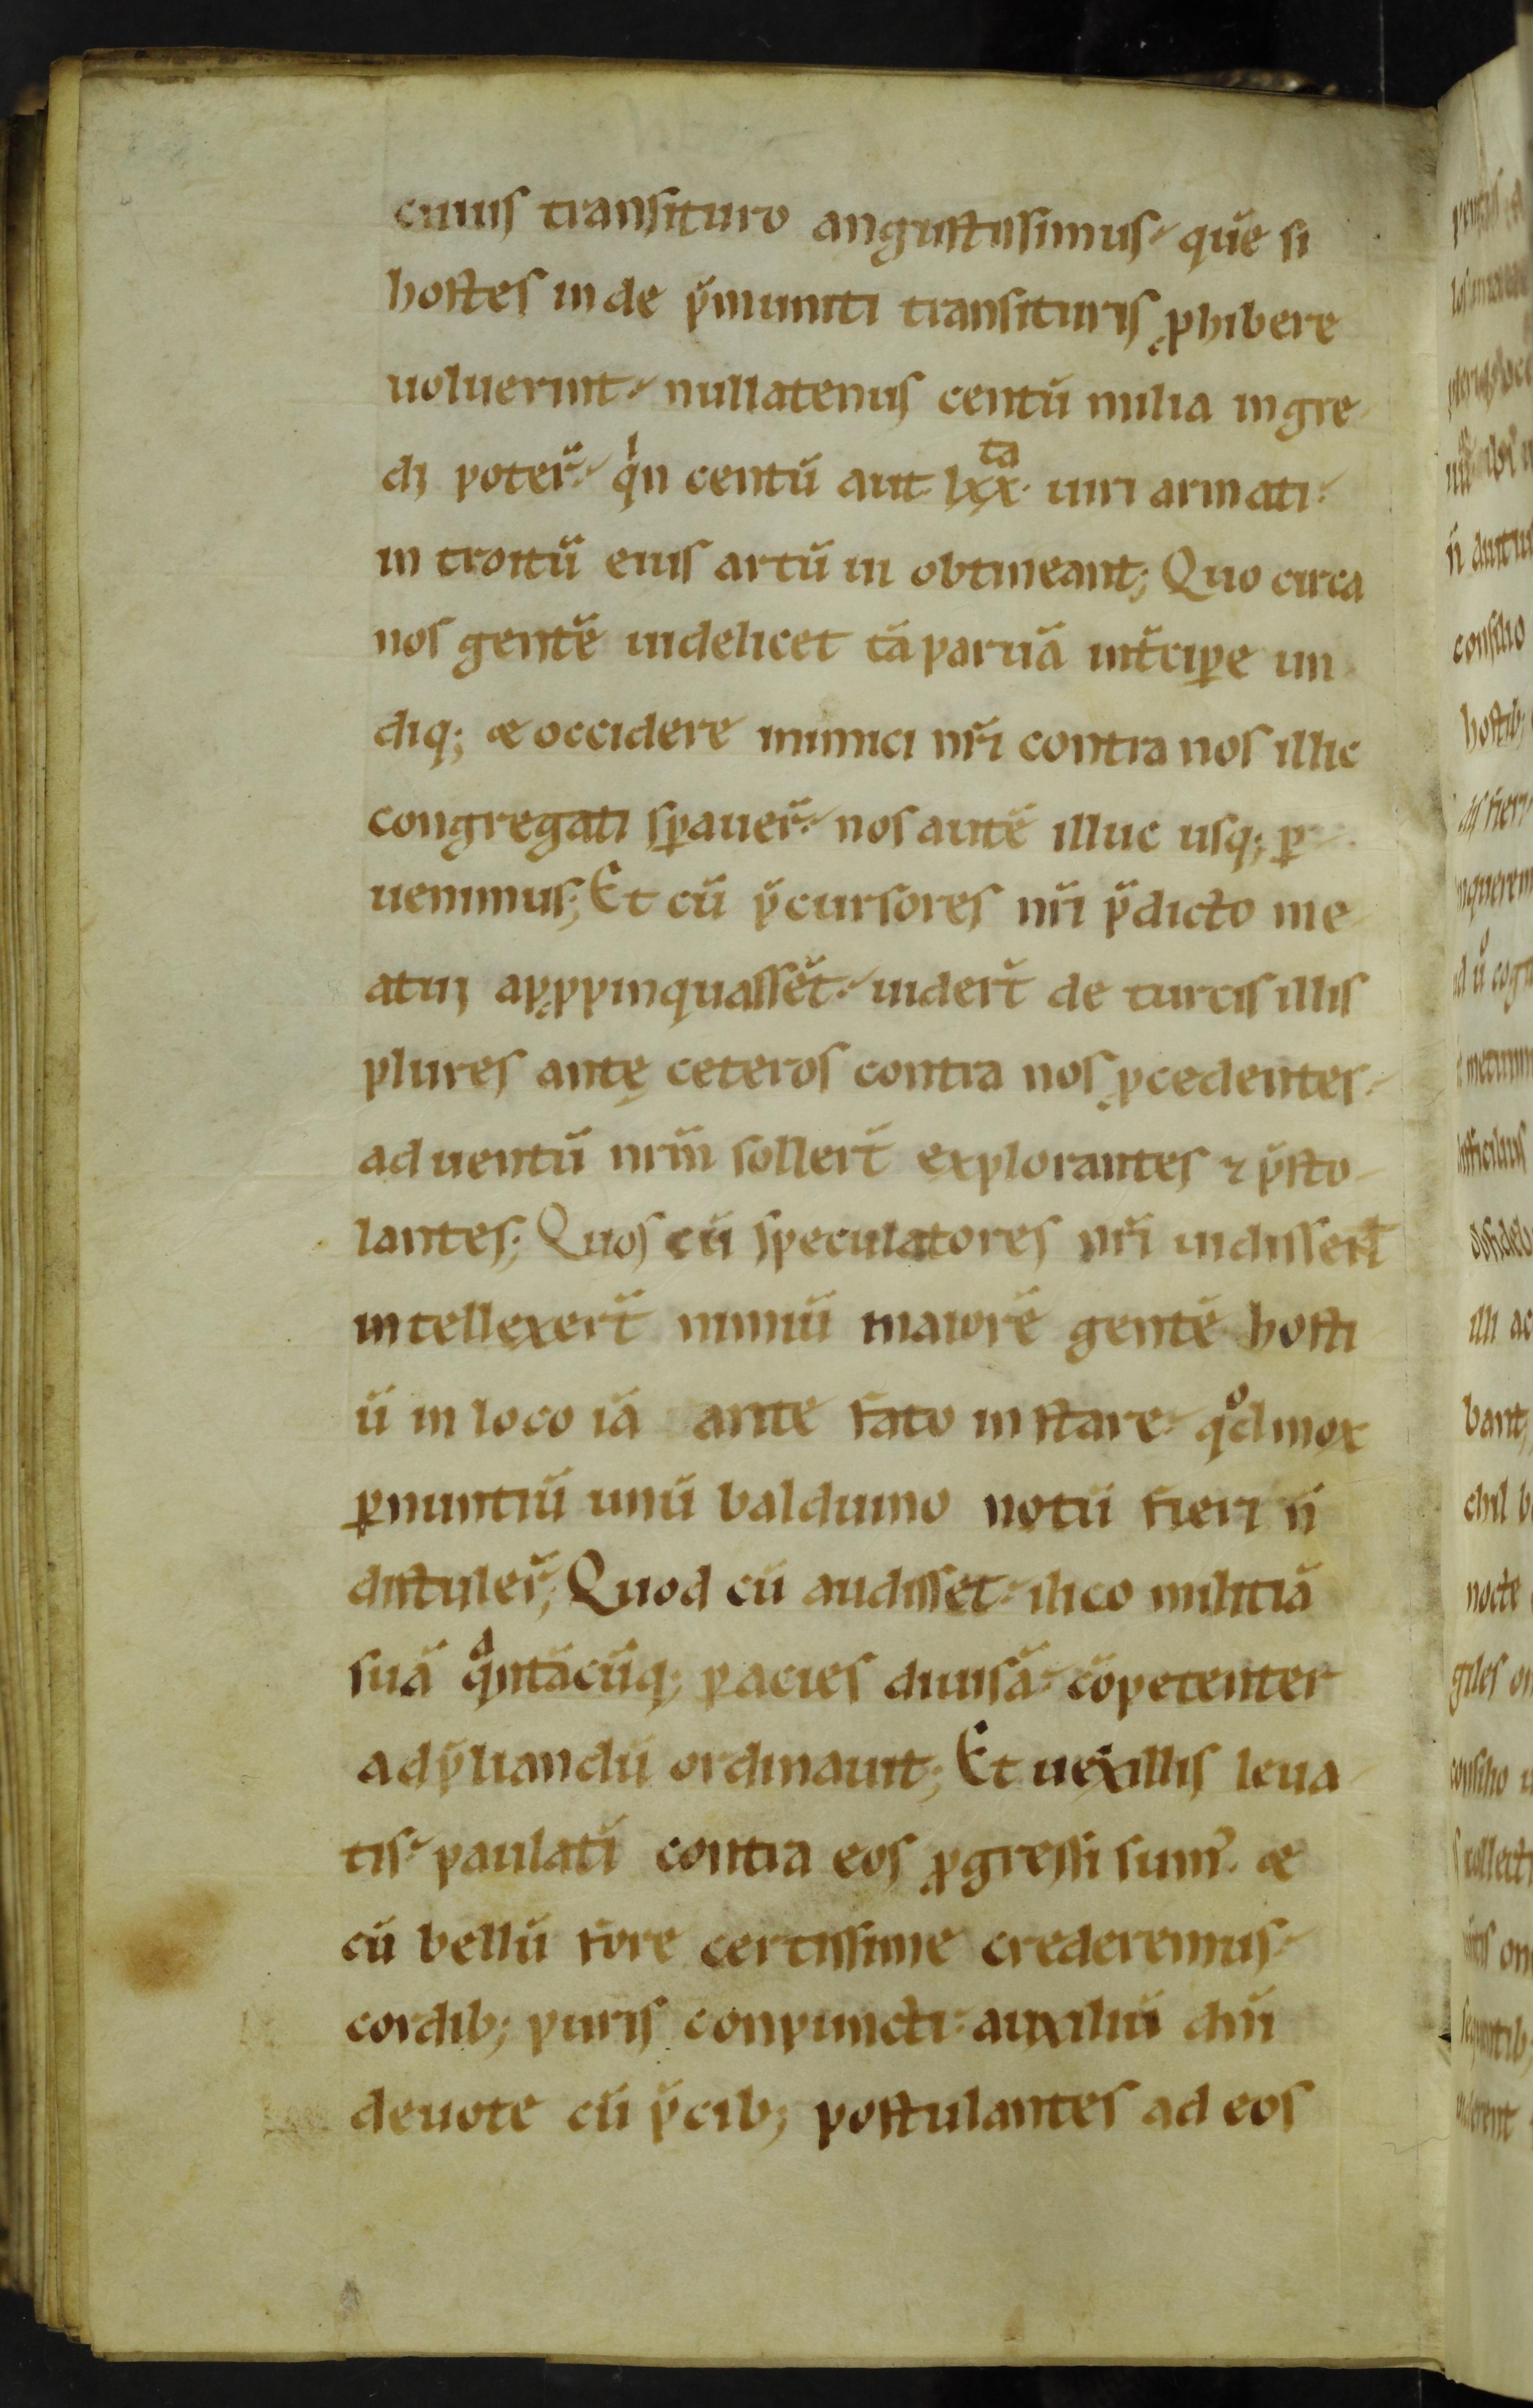 cuius transituro angustissimus quē si
hostes inde p̄muniti transituris ꝓhibere
uoluerint nullatenus centū milia ingre
di poter̄ qin centū aut lxx ta uiri armati
introitū eius artū in obtineant; Quo circa
nos gentē uidelicet tā paruā int̄cipe un
diq; & occidere inimici nr̄i contra nos illic
congregati sꝑauer̄ nos autē illuc usq; ꝑ
uenimus; Et cū p̄cursores nr̄i p̄dicto me
atui apꝓpinquassēt uider̄t de turcis illis
plures ante ceteros contra nos ꝓcedentes
aduentū nr̄m soller̄t explorantes ⁊ p̄sto
lantes; Quos cū speculatores nr̄i uidisser̄t
intellexer̄t nimiū maiorē gentē hosti
ū in loco iā ante fato instare qod mox
ꝑnuntiū unū balduino notū fieri n̄
distuler̄; Quod cū audisset ilico militiā
suā qantācūq; ꝑ acies diuisā cōpetenter
ad p̄liandū ordinauit; Et uexillis leua
tis paulatī contra eos ꝓgressi sum᷒ &
cū bellū fore certissime crederemus
cordib; puris conpuncti auxiliū dn̄i
deuote cū p̄cib; postulantes ad eos